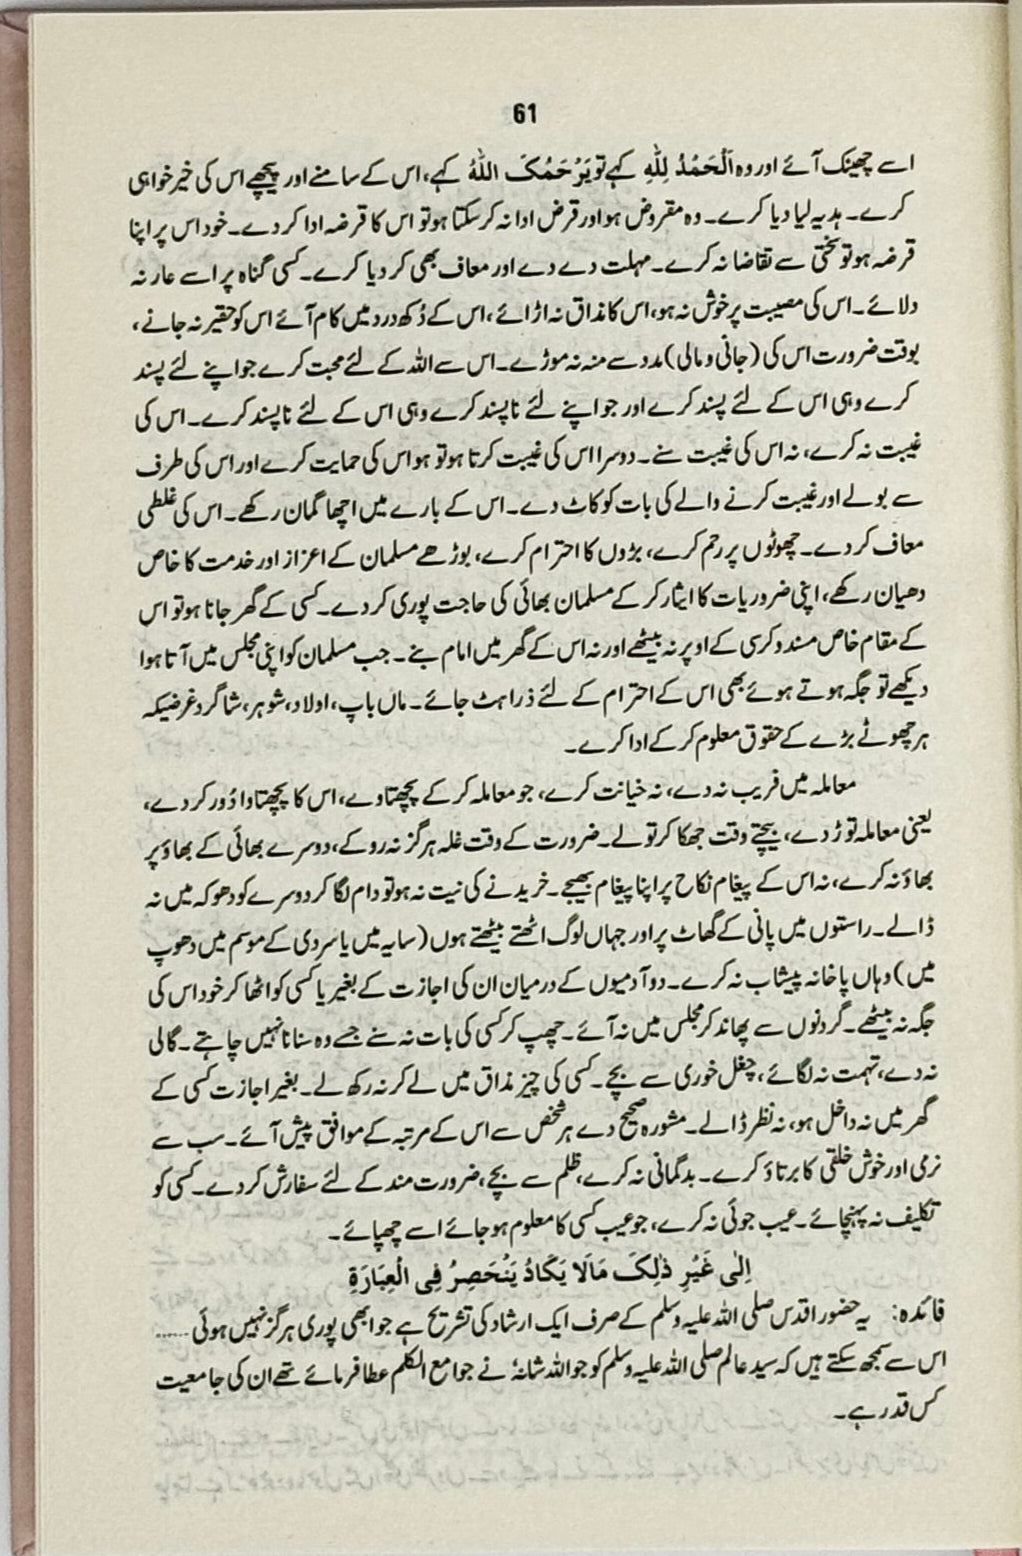 61
اسے چھینک آئے اور وہ اَلْحَمْدُ لِلّٰهِ کہے تو یَرْحَمُکَ اللّٰهُ کہے، اس کے سامنے اور پیچھے اس کی خیر خواہی
کرے۔ ہدیہ لیا دیا کرے۔ وہ مقروض ہو اور قرض ادا نہ کر سکتا ہو تو اس کا قرضہ ادا کر دے۔ خود اس پر اپنا
قرضہ ہو تو سختی سے تقاضا نہ کرے۔ مہلت دے دے اور معاف بھی کر دیا کرے۔ کسی گناہ پر اسے عار نہ
دلائے۔ اس کی مصیبت پر خوش نہ ہو، اس کا مذاق نہ اڑائے، اس کے دُکھ درد میں کام آئے اس کو حقیر نہ جانے،
بوقت ضرورت اس کی (جانی و مالی) مدد سے منہ نہ موڑے۔ اس سے اللہ کے لئے محبت کرے جو اپنے لئے پسند
کرے وہی اس کے لئے پسند کرے اور جو اپنے لئے ناپسند کرے وہی اس کے لئے ناپسند کرے۔ اس کی
غیبت نہ کرے، نہ اس کی غیبت سنے۔ دوسرا اس کی غیبت کرتا ہو تو ہو اس کی حمایت کرے اور اس کی طرف
سے بولے اور غیبت کرنے والے کی بات کو کاٹ دے۔ اس کے بارے میں اچھا گمان رکھے۔ اس کی غلطی
معاف کر دے۔ چھوٹوں پر رحم کرے، بڑوں کا احترام کرے، بوڑھے مسلمان کے اعزاز اور خدمت کا خاص
دھیان رکھے، اپنی ضروریات کا ایثار کر کے مسلمان بھائی کی حاجت پوری کر دے۔ کسی کے گھر جانا ہو تو اس
کے مقام خاص مسند و کرسی کے اوپر نہ بیٹھے اور نہ اس کے گھر میں امام بنے۔ جب مسلمان کو اپنی مجلس میں آتا ہوا
دیکھے تو جگہ ہوتے ہوئے بھی اس کے احترام کے لئے ذرا ہٹ جائے۔ ماں باپ، اولاد، شوہر، شاگرد غرضیکہ
ہر چھوٹے بڑے کے حقوق معلوم کر کے ادا کرے۔
معاملہ میں فریب نہ دے، نہ خیانت کرے، جو معاملہ کر کے پچھتاوے، اس کا پچھتاوا دُور کر دے،
یعنی معاملہ توڑ دے، بیچتے وقت جھکا کر تولے۔ ضرورت کے وقت غلہ ہرگز نہ روکے، دوسرے بھائی کے بھاؤ پر
بھاؤ نہ کرے، نہ اس کے پیغام نکاح پر اپنا پیغام بھیجے۔ خریدنے کی نیت نہ ہو تو دام لگا کر دوسرے کو دھوکہ میں نہ
ڈالے۔ راستوں میں پانی کے گھاٹ پر اور جہاں لوگ اٹھتے بیٹھتے ہوں (سایہ میں یا سردی کے موسم میں دھوپ
میں) وہاں پاخانہ پیشاب نہ کرے۔ دو آدمیوں کے درمیان ان کی اجازت کے بغیر یا کسی کو اٹھا کر خود اس کی
جگہ نہ بیٹھے۔ گردنوں سے پھاند کر مجلس میں نہ آئے۔ چھپ کر کسی کی بات نہ سنے جسے وہ سنانا نہیں چاہتے۔ گالی
نہ دے، تہمت نہ لگائے، چغل خوری سے بچے۔ کسی کی چیز مذاق میں لے کر نہ رکھ لے۔ بغیر اجازت کسی کے
گھر میں نہ داخل ہو، نہ نظر ڈالے۔ مشورہ صحیح دے ہر شخص سے اس کے مرتبہ کے موافق پیش آئے۔ سب سے
نرمی اور خوش خلقی کا برتاؤ کرے۔ بدگمانی نہ کرے، ظلم سے بچے، ضرورت مند کے لئے سفارش کر دے۔ کسی کو
تکلیف نہ پہنچائے۔ عیب جوئی نہ کرے، جو عیب کسی کا معلوم ہو جائے اسے چھپائے۔
اِلٰی غَیْرِ ذٰلِکَ مَالَا یَکَادُ یَنْحَصِرُ فِی الْعِبَارَةِ
فائدہ: یہ حضور اقدس صلی اللہ علیہ وسلم کے صرف ایک ارشاد کی تشریح ہے جو ابھی پوری ہرگز نہیں ہوئی ......
اس سے سمجھ سکتے ہیں کہ سید عالم صلی اللہ علیہ وسلم کو جو اللہ شانہٗ نے جوامع الکلم عطا فرمائے تھے ان کی جامعیت
کس قدر ہے۔